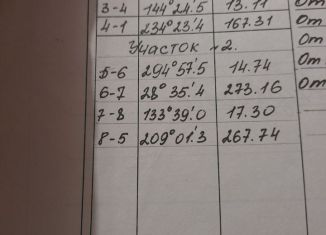 3-4 144°24.'5 13.11 От
4-1 234°23.'4 167.31 От
Участок №2. От
5-6 294°57.'5 14.74 От
6-7 28°35.'4 273.16 От
7-8 133°39.'0 17.30
8-5 209°01.'3 267.74